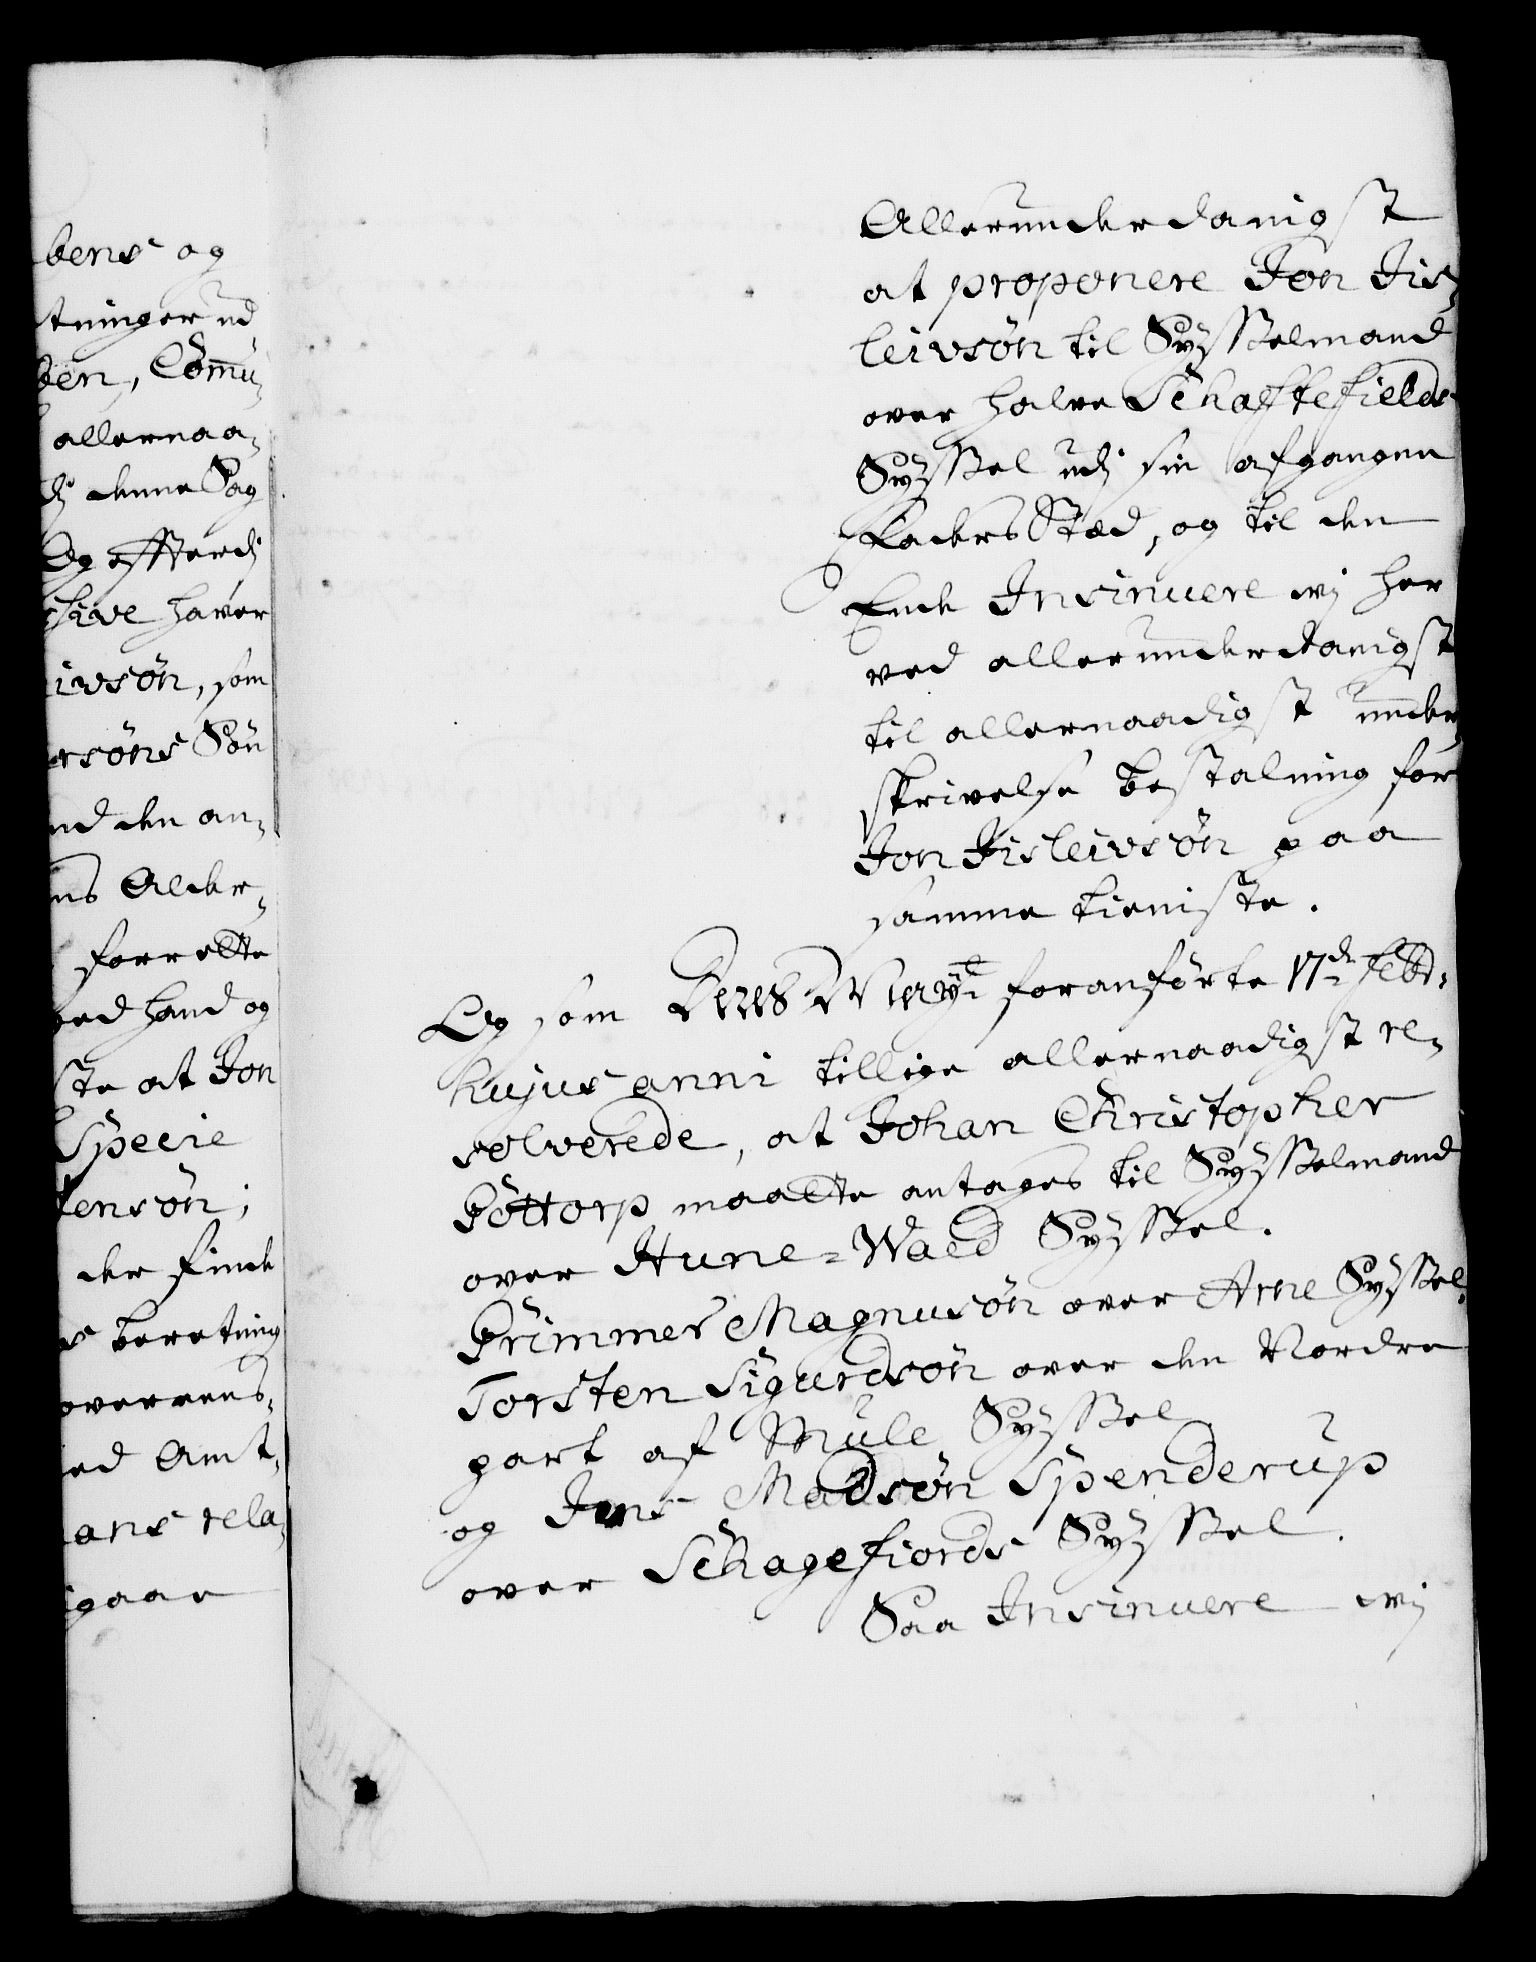 bens og
tninger ud
ben, Com̄u¬
allernaa¬
dj denne Sag
Og efterdj
haver
ivsøn, som
ersøns Søn
nd den an¬
ns Alder¬
forrette
ed hand og
ste at Jon
Specie
tensøn;
der finde
s beretning
overeens¬
ed Amt¬
ans rela¬
gaar
Allerunderdanigst
at proponere Jon Jis¬
leivsøn til Sysselmand
over halve Schafftefields
Syssel udj sin afgangne
Faders Stæd, og til den
Ende Insinuere wj her
ved allerunderdanigst
til allernaadigst under¬
skrivelse bestalning for
Jon Jisleivsøn paa
samme tieniste.
Og som Deres Mayt foranførte 17de Febr:
hujus anni tillige allernaadigst re¬
solverede, at Johan Christopher
Gottorp maatte antages til Sysselmand
over Hune=Waed Syssel.
Grimmer Magnusøn over Arne Syssel.
Torsten Sigurdsøn over den Nordre
part af Mule Syssel
og Jens Madsøn Spenderup
over Schagefiords Syssel.
Saa Insinuere wj